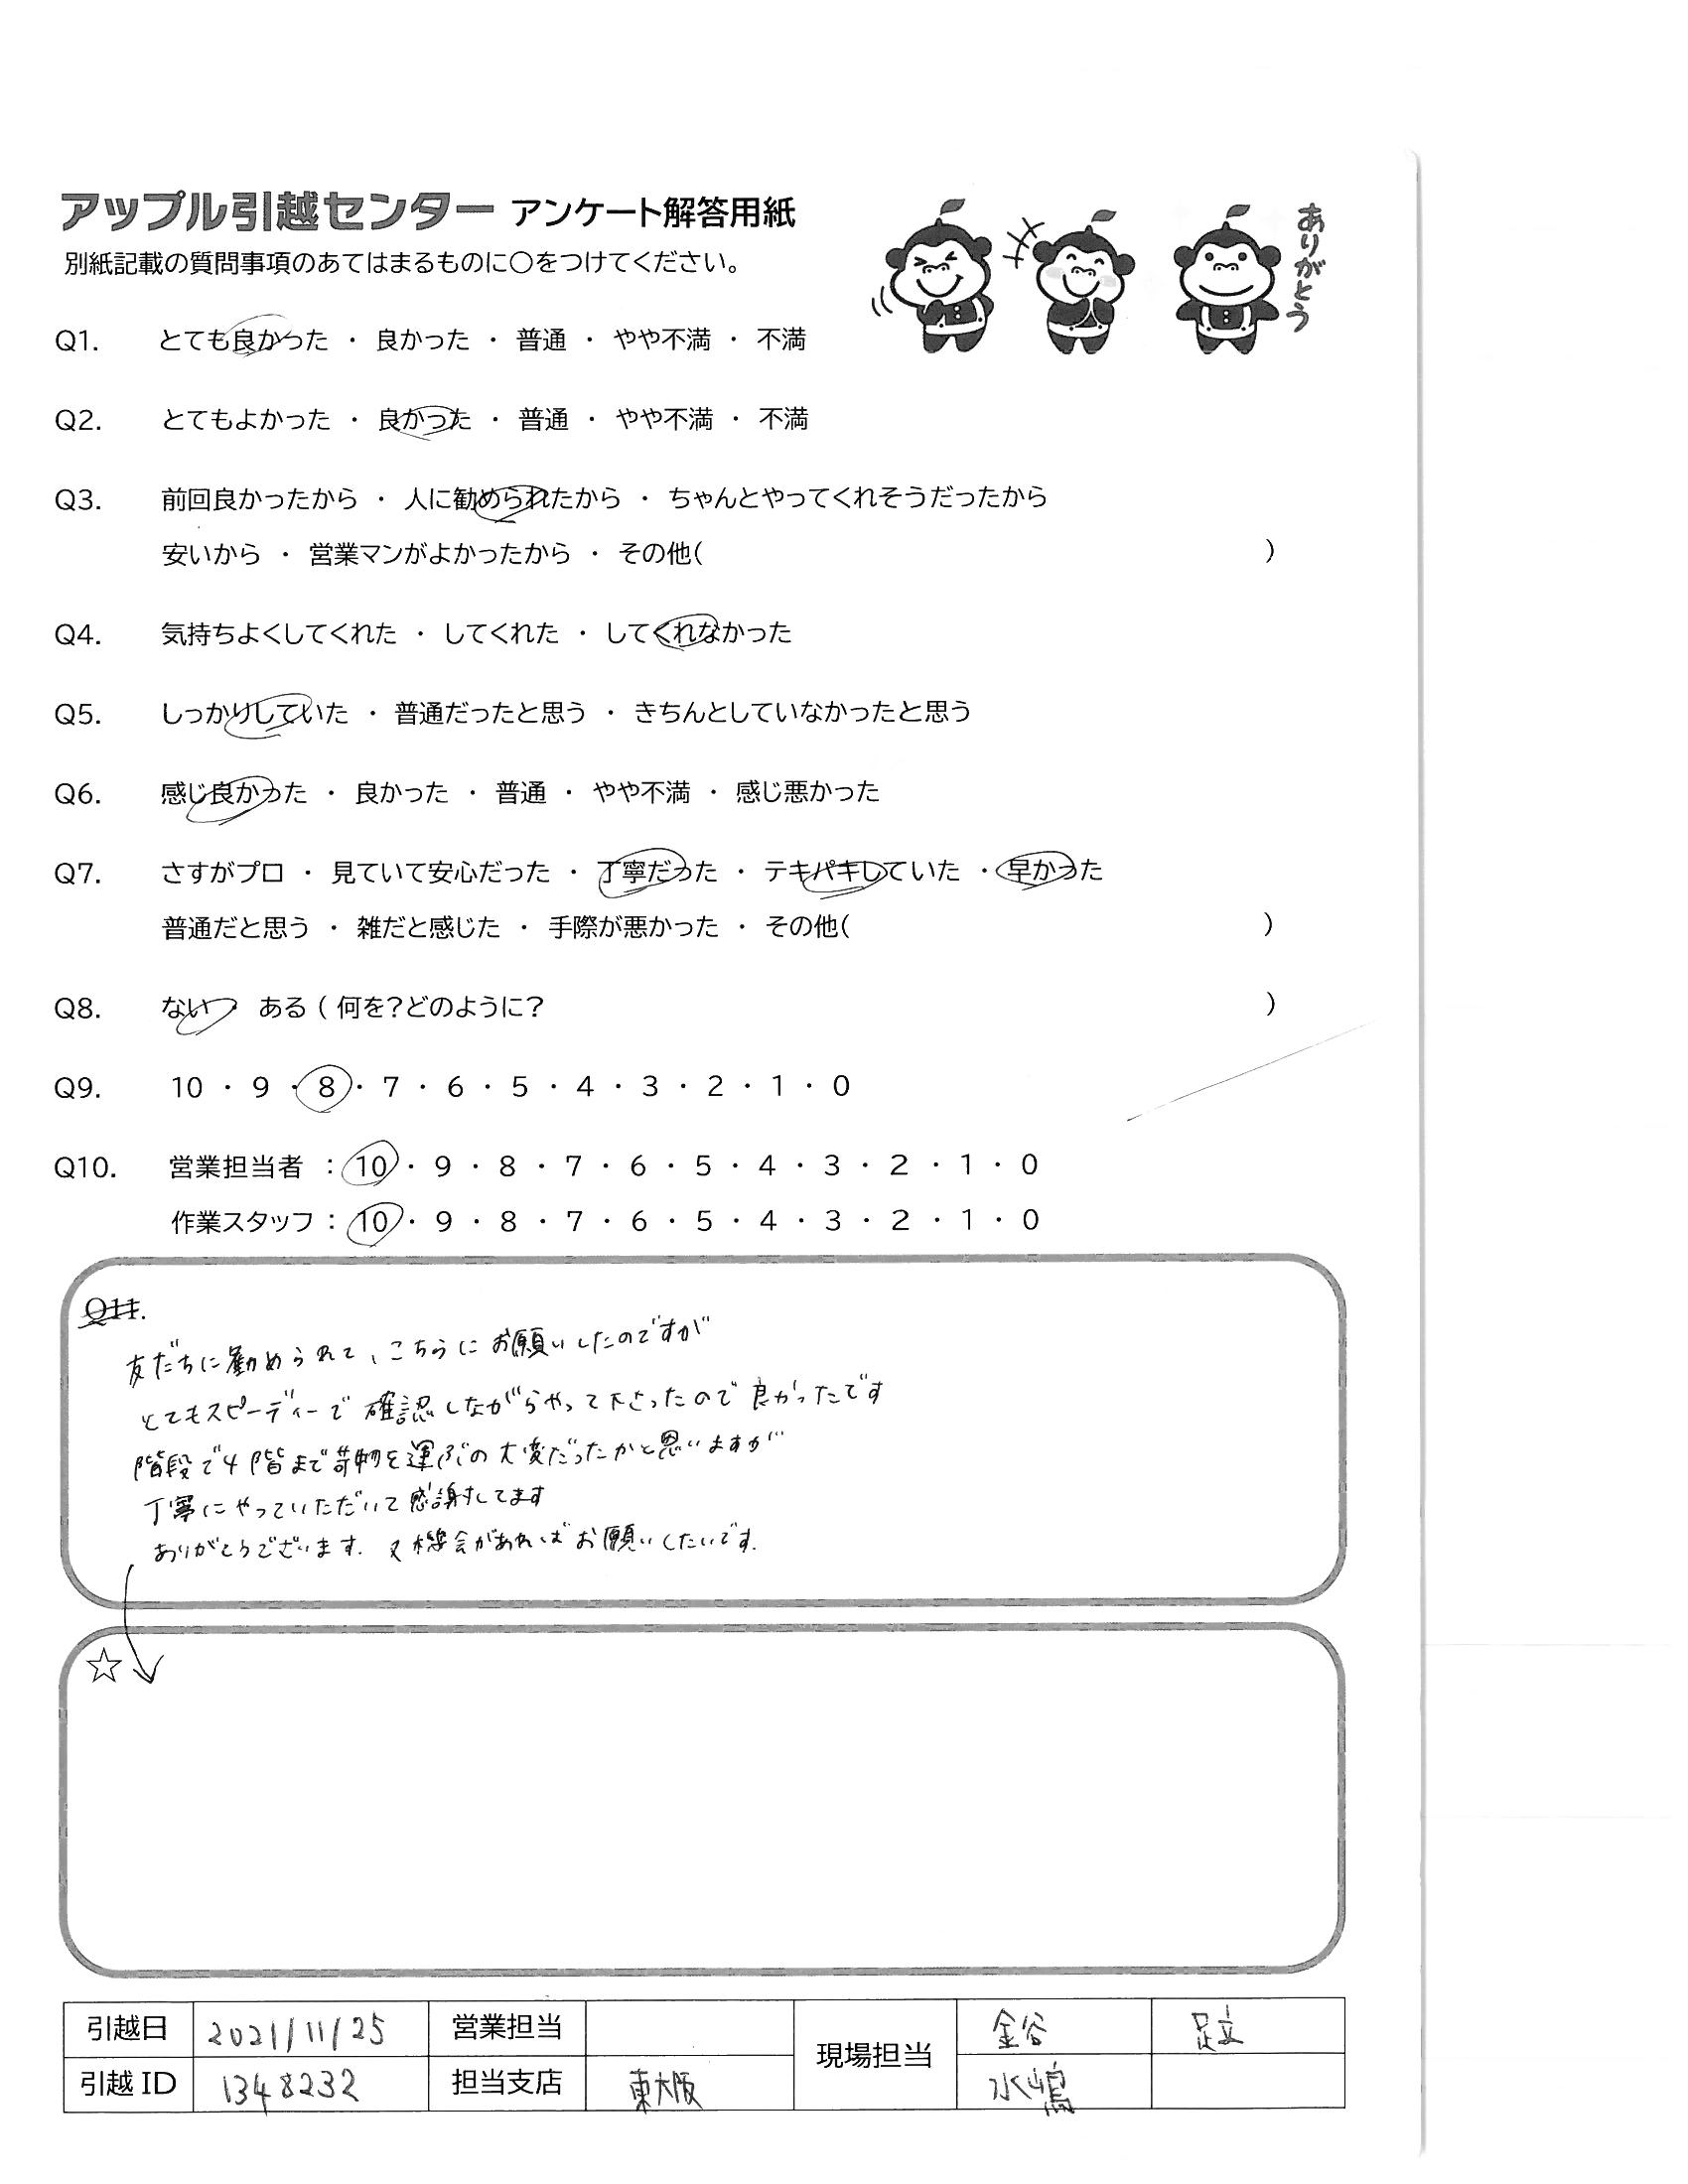 アップル引越センター アンケート解答用紙
別紙記載の質問事項のあてはまるものに○をつけてください。
ありがとう
Q1. とても良かった ・ 良かった ・ 普通 ・ やや不満 ・ 不満
Q2. とてもよかった ・ 良かった ・ 普通 ・ やや不満 ・ 不満
Q3. 前回良かったから ・ 人に勧められたから ・ ちゃんとやってくれそうだったから
安いから ・ 営業マンがよかったから ・ その他( )
Q4. 気持ちよくしてくれた ・ してくれた ・ してくれなかった
Q5. しっかりしていた ・ 普通だったと思う ・ きちんとしていなかったと思う
Q6. 感じ良かった ・ 良かった ・ 普通 ・ やや不満 ・ 感じ悪かった
Q7. さすがプロ ・ 見ていて安心だった ・ 丁寧だった ・ テキパキしていた ・ 早かった
普通だと思う ・ 雑だと感じた ・ 手際が悪かった ・ その他( )
Q8. ない ・ ある ( 何を?どのように? )
Q9. 10 ・ 9 ・ 8 ・ 7 ・ 6 ・ 5 ・ 4 ・ 3 ・ 2 ・ 1 ・ 0
Q10. 営業担当者 : 10 ・ 9 ・ 8 ・ 7 ・ 6 ・ 5 ・ 4 ・ 3 ・ 2 ・ 1 ・ 0
作業スタッフ : 10 ・ 9 ・ 8 ・ 7 ・ 6 ・ 5 ・ 4 ・ 3 ・ 2 ・ 1 ・ 0
Q11.
友だちに勧められて、こちらにお願いしたのですが
とてもスピーディーで確認しながらやって下さったので良かったです
階段で4階まで荷物を運ぶの大変だったかと思いますが
丁寧にやっていただいて感謝してます
ありがとうございます. 又機会があればお願いしたいです.
☆
引越日 2021/11/25 営業担当 現場担当 金谷 足立
引越ID 1348232 担当支店 東大阪 水嶋